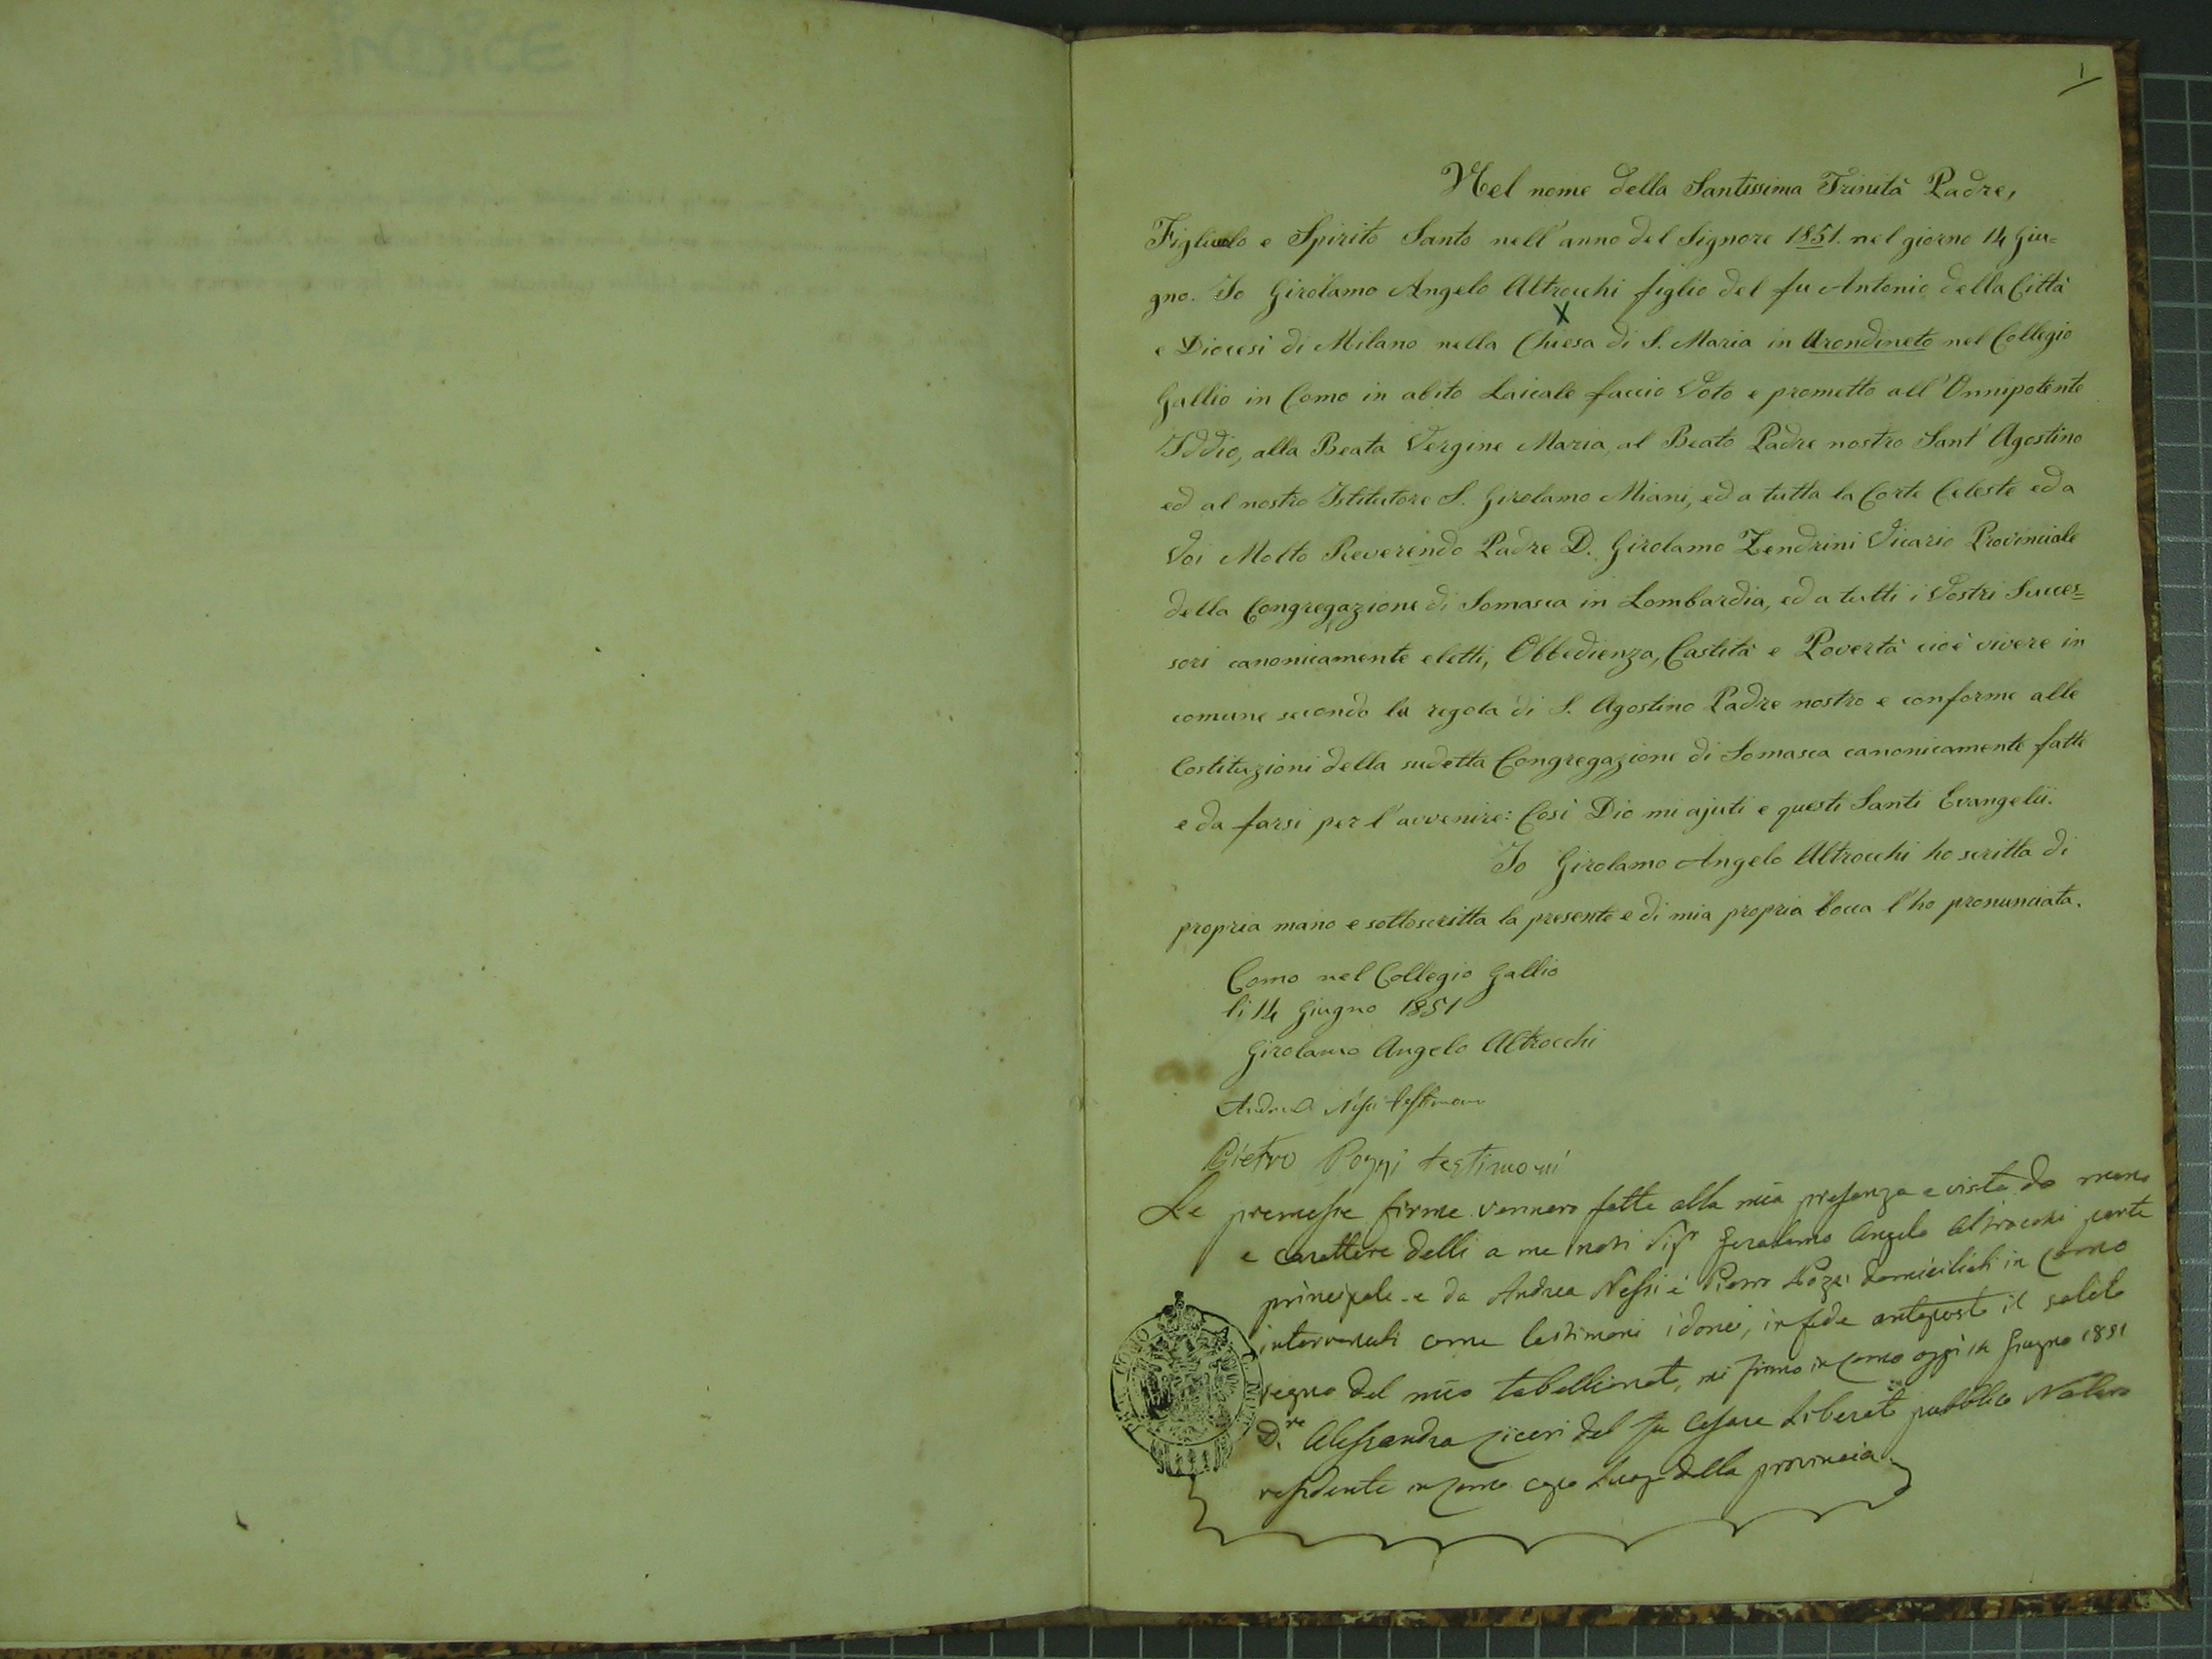 INDICE
1
Nel nome della Santissima Trinità Padre,
Figliuolo e Spirito Santo nell'anno del Signore 1851. nel giorno 14 Giu=
gno. Io Girolamo Angelo Altrocchi figlio del fu Antonio della Città
X
e Diocesi di Milano nella Chiesa di S. Maria in Arondineto nel Collegio
Gallio in Como in abito Laicale faccio Voto e prometto all'Onnipotente
Iddio, alla Beata Vergine Maria, al Beato Padre nostro Sant'Agostino
ed al nostro Istitutore S. Girolamo Miani, ed a tutta la Corte Celeste ed a
Voi Molto Reverendo Padre D. Girolamo Zendrini Vicario Provinciale
della Congregazione di Somasca in Lombardia, ed a tutti i Vostri Succes=
sori canonicamente eletti, Obbedienza, Castità e Povertà cioè vivere in
comune secondo la regola di S. Agostino Padre nostro e conforme alle
Costituzioni della sudetta Congregazione di Somasca canonicamente fatte
e da farsi per l'avvenire: Così Dio mi ajuti e questi Santi Evangelii.
Io Girolamo Angelo Altrocchi ho scritta di
propria mano e sottoscritta la presente e di mia propria bocca l'ho pronunciata.
Como nel Collegio Gallio
li 14 Giugno 1851
Girolamo Angelo Altrocchi
Andrea Nessi testimonio
Pietro Pozzi testimonì
Le premesse firme vennero fatte alla mia presenza e vista da mano
e carattere delli a me noti Sigr Gerolamo Angelo Altrocchi parte
principale e da Andrea Nessi e Pietro Pozzi domiciliati in Como
intervenuti come testimoni idonei, in fede anteposto il solito
segno del mio tabellionato, mi firmo in Como oggi 14 Giugno 1851
D.re Alessandro Ciceri del fu Cesare Liberato pubblico Notaro
residente in Como capo Luogo della provincia